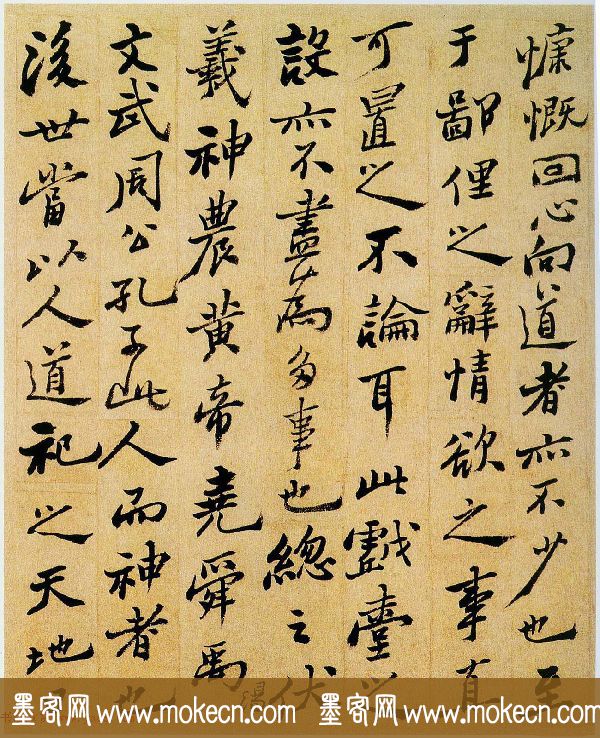 慷慨回心向道者亦不少也至
于鄙俚之辭情欲之事直
可置之不論耳此戲臺之
設亦不盡為多事也總之伏
羲神農黃帝堯舜禹
文武周公孔子此人而神者也
後世當以人道祀之天地
墨客网 www.mokecn.com 墨客网 www.mokecn.com